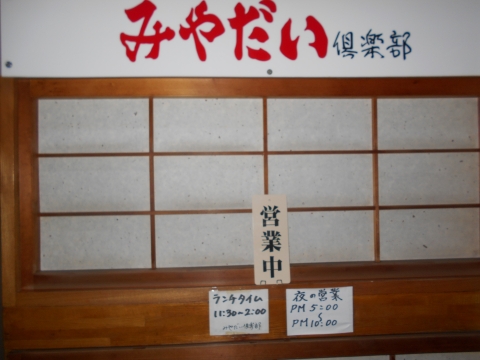 みやだい倶楽部
営業中
ランチタイム
11:30~2:00
みやだい倶楽部
夜の営業
PM 5:00
~
PM10:00